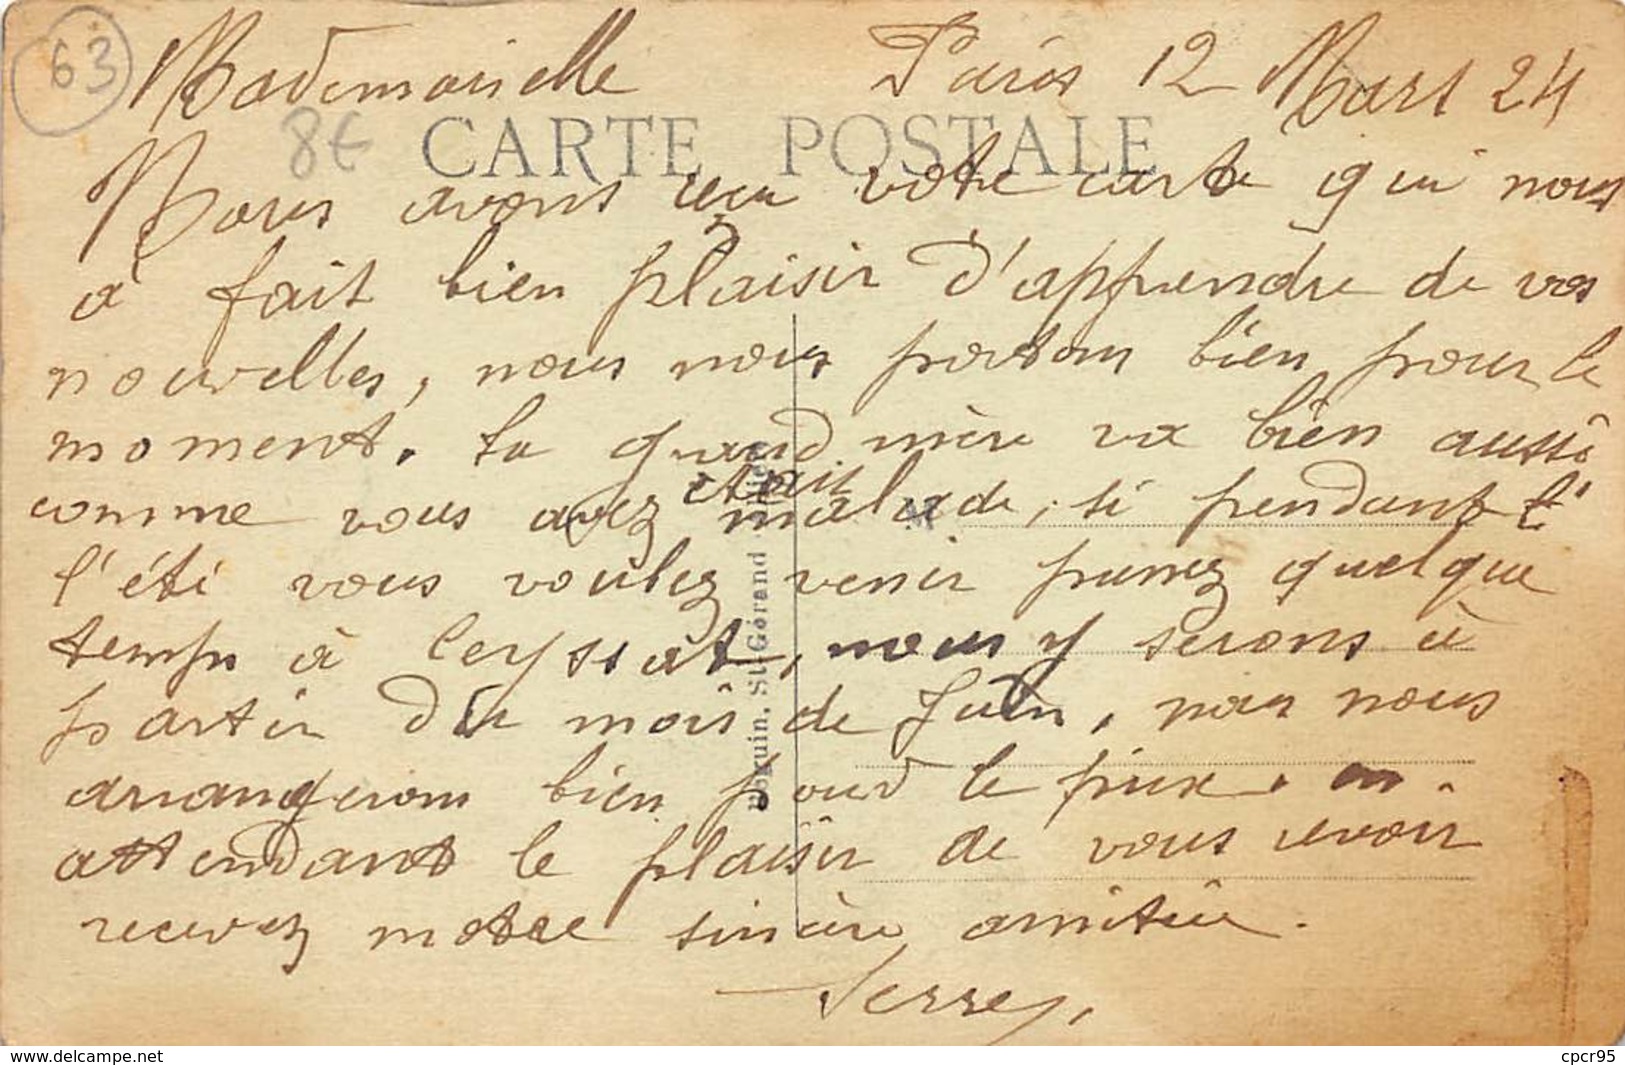 63
Mademoiselle Paris 12 Mars 24
8€
CARTE POSTALE
Nous avons reçu votre carte qui nous
à fait bien plaisir d'apprendre de vos
nouvelles, nous nous portons bien pour le
moment. ta grand mère va bien aussi
était
comme vous avez malade, si pendant l'
l'été vous voulez venir passez quelque
temps à Ceyssat, nous y serons à
partir du mois de Juin, nous nous
arrangerons bien pour le prix. en
attendant le plaisir de vous revoir
recevez notre sincère amitiée.
Serres,
St-Gérand
www.delcampe.net
cpcr95